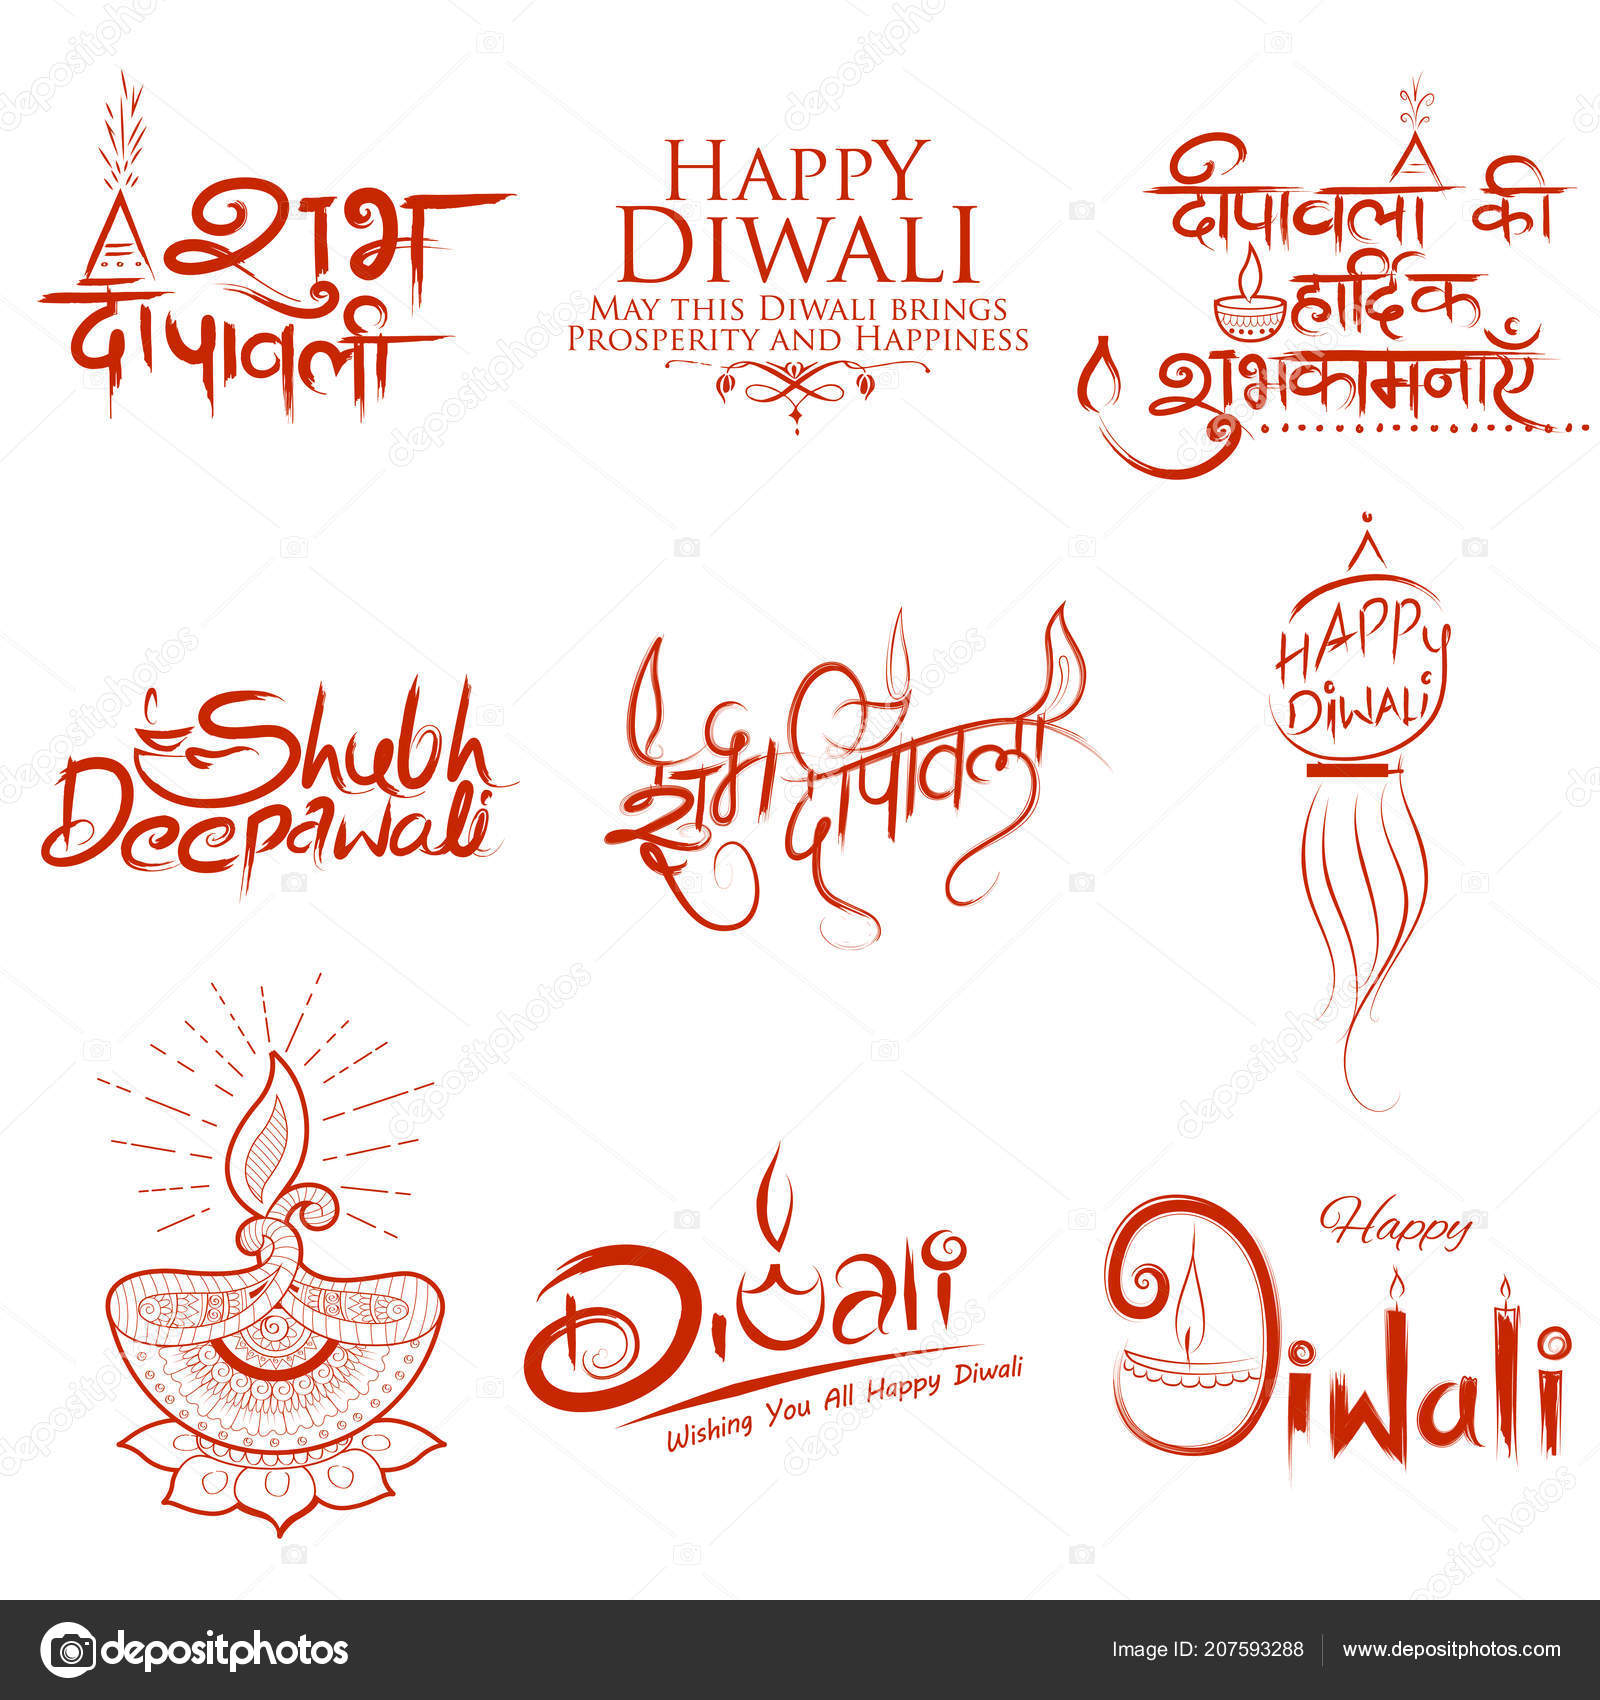 शुभ
दीपावली
HAPPY
DIWALI
MAY THIS DIWALI BRINGS
PROSPERITY AND HAPPINESS
दीपावली की
हार्दिक
शुभकामनाएँ
Shubh
Deepawali
शुभ दीपावली
HAPPY
DIWALI
Diwali
Wishing You All Happy Diwali
Happy
Diwali
depositphotos
Image ID: 207593288
www.depositphotos.com